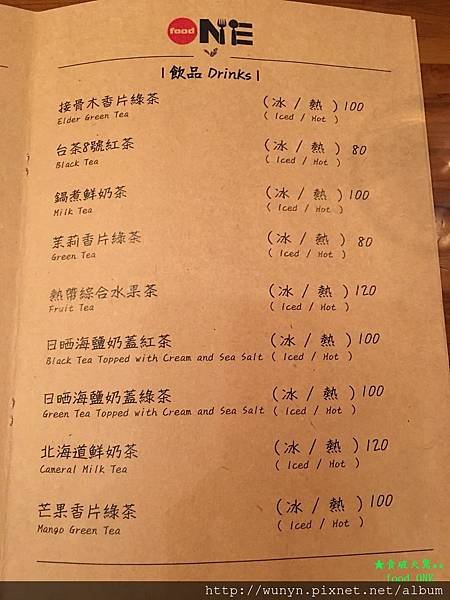 food ONE
| 飲品 Drinks |
接骨木香片綠茶 (冰 / 熱) 100
Elder Green Tea ( Iced / Hot )
台茶8號紅茶 (冰 / 熱) 80
Black Tea ( Iced / Hot )
鍋煮鮮奶茶 (冰 / 熱) 100
Milk Tea ( Iced / Hot )
茉莉香片綠茶 (冰 / 熱) 80
Green Tea ( Iced / Hot )
熱帶綜合水果茶 (冰 / 熱) 120
Fruit Tea ( Iced / Hot )
日晒海鹽奶蓋紅茶 (冰 / 熱) 100
Black Tea Topped with Cream and Sea Salt ( Iced / Hot )
日晒海鹽奶蓋綠茶 (冰 / 熱) 100
Green Tea Topped with Cream and Sea Salt ( Iced / Hot )
北海道鮮奶茶 (冰 / 熱) 120
Cameral Milk Tea ( Iced / Hot )
芒果香片綠茶 (冰 / 熱) 100
Mango Green Tea ( Iced / Hot )
food ONE
http://wunyn.pixnet.net/album